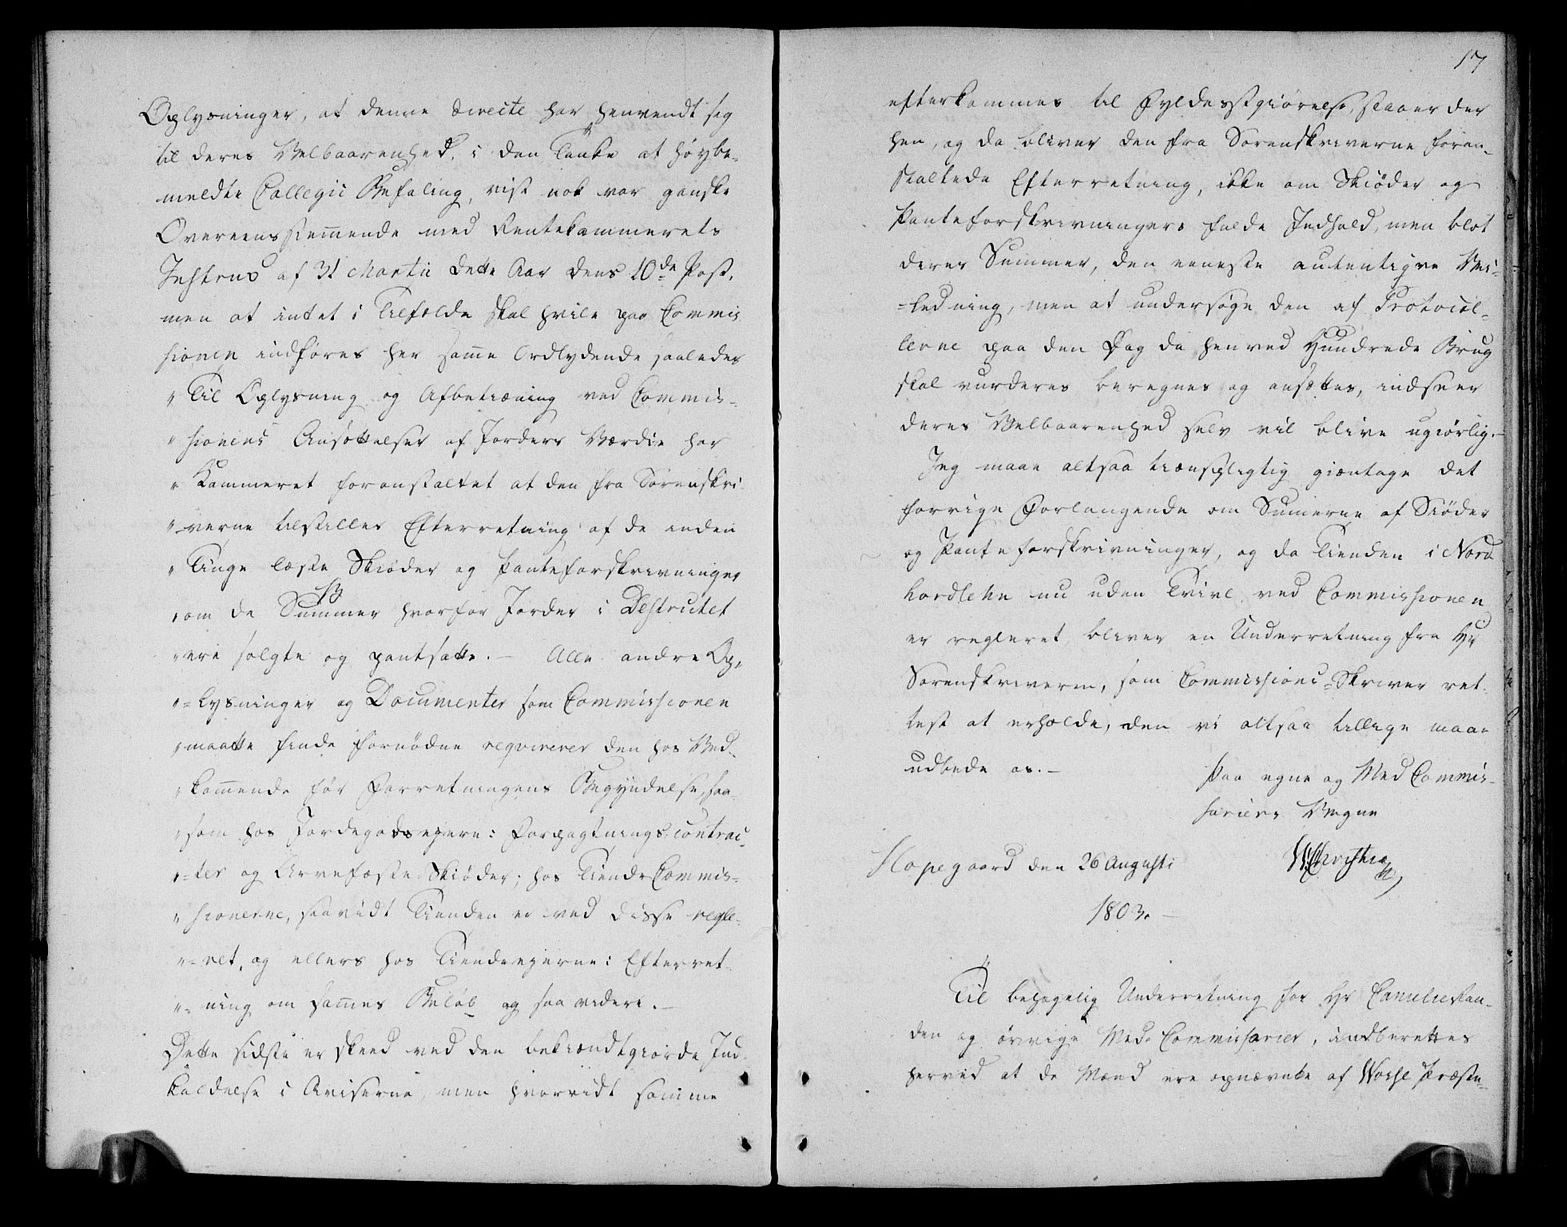 Oplysninger, at denne directe har henvendt sig
til deres Velbaarenhed, i den Tanke at høybe-
meldte Collegii Befaling, vist nok var ganske
Overeensstemende med Rentekammerets
Instrux af 31 Martii dette Aar dens 10de Post,
men at intet i Tilfælde skal hvile paa Commis
sionen indføres her samme Ordlydende saaledes
" Til Oplysning og Afbenævning ved Commis-
" sionens Ansættelser af Jorders Værdie har
" Kammeret foranstaltet at den fra Sorenskri
" verne tilstilles Efterretning af de inden
" Tinge læste Skiøder og Panteforskrivninger
" om de Summer hvorfor Jorder i Destrictet
" ere solgte og pantsatte. — Alle andre Op-
"- lysninger og Documenter som Commissionen
" maatte finde fornødne reqvirerer den hos Ved-
" kommende før Forretningens Begyndelse, saa-
" som hos Jordegodsejere: Forpagtnings contrac-
"-ter og Arvefæste Skiøder; hos Tiende Commis-
" sionerne, saavidt Tienden er ved disse regle-
"-ret, og ellers hos Tiendeejerne: Efterret-
"- ning om sammes Beløb og saa videre. —
Dette sidste er skeed ved den bekiendtgiorde Ind-
kaldelse i Aviserne, men hvorvidt samme
17
efterkommes til Fyldestgiørelse, staaer der
hen, og da bliver den fra Sorenskriverne foran-
staltede Efterretning, ikke om Skiøder og
Panteforskrivningers fulde Indhold, men blot
deres Summer, den eeneste autentiqve Vei-
-ledning, men at undersøge den af Protocol-
lerne paa den Dag da henved Hundrede Brug
skal vurderes beregnes og ansættes, indseer
deres Velbaarenhed selv vil blive ugiørlig. —
Jeg maae altsaa tienstpligtig giøntage det
forrige Forlangende om Sumerne af Skiøder
og Panteforskrivninger, og da Tienden i Nord
hordlehn nu uden Tvivl ved Commissionen
er regleret, bliver en Underretning fra Hr
Sorenskriveren, som Commissions-Skriver ret-
test at erholde, den vi altsaa tillige maae
udbede os. —
Paa egne og Med Commis-
sariers Vegne
Hopegaard den 26 Augusti
WChristie
1803. —
Til behagelig Underretning for Hr Cancelie Raa-
den og øvrige Med-Commissarier, indberettes
herved at de Mænd ere opnævnte af Wosse Præste-